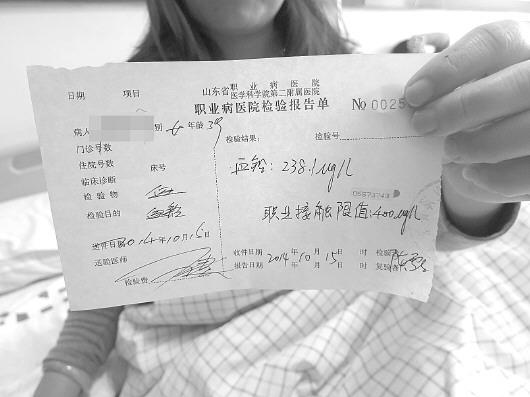 日期 项目
山东省职业病医院
医学科学院第二附属医院
职业病医院检验报告单
No 0025
病人 别 女 年龄 39
门诊号数
住院号数 床号
临床诊断
检验物 血
检验目的 血铅
送件日期 2014年10月15日
送验医师
检验费
检验结果: 检验号
血铅: 238.1μg/L
职业接触限值:400μg/L
收件日期 2014年10月15日 时 检验
报告日期 年 月 日 时 复验者